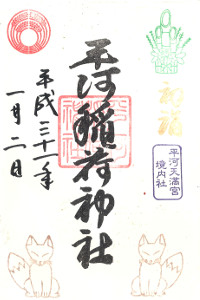 初詣
平河稲荷神社
平河天満宮
境内社
平成三十一年
一月二日